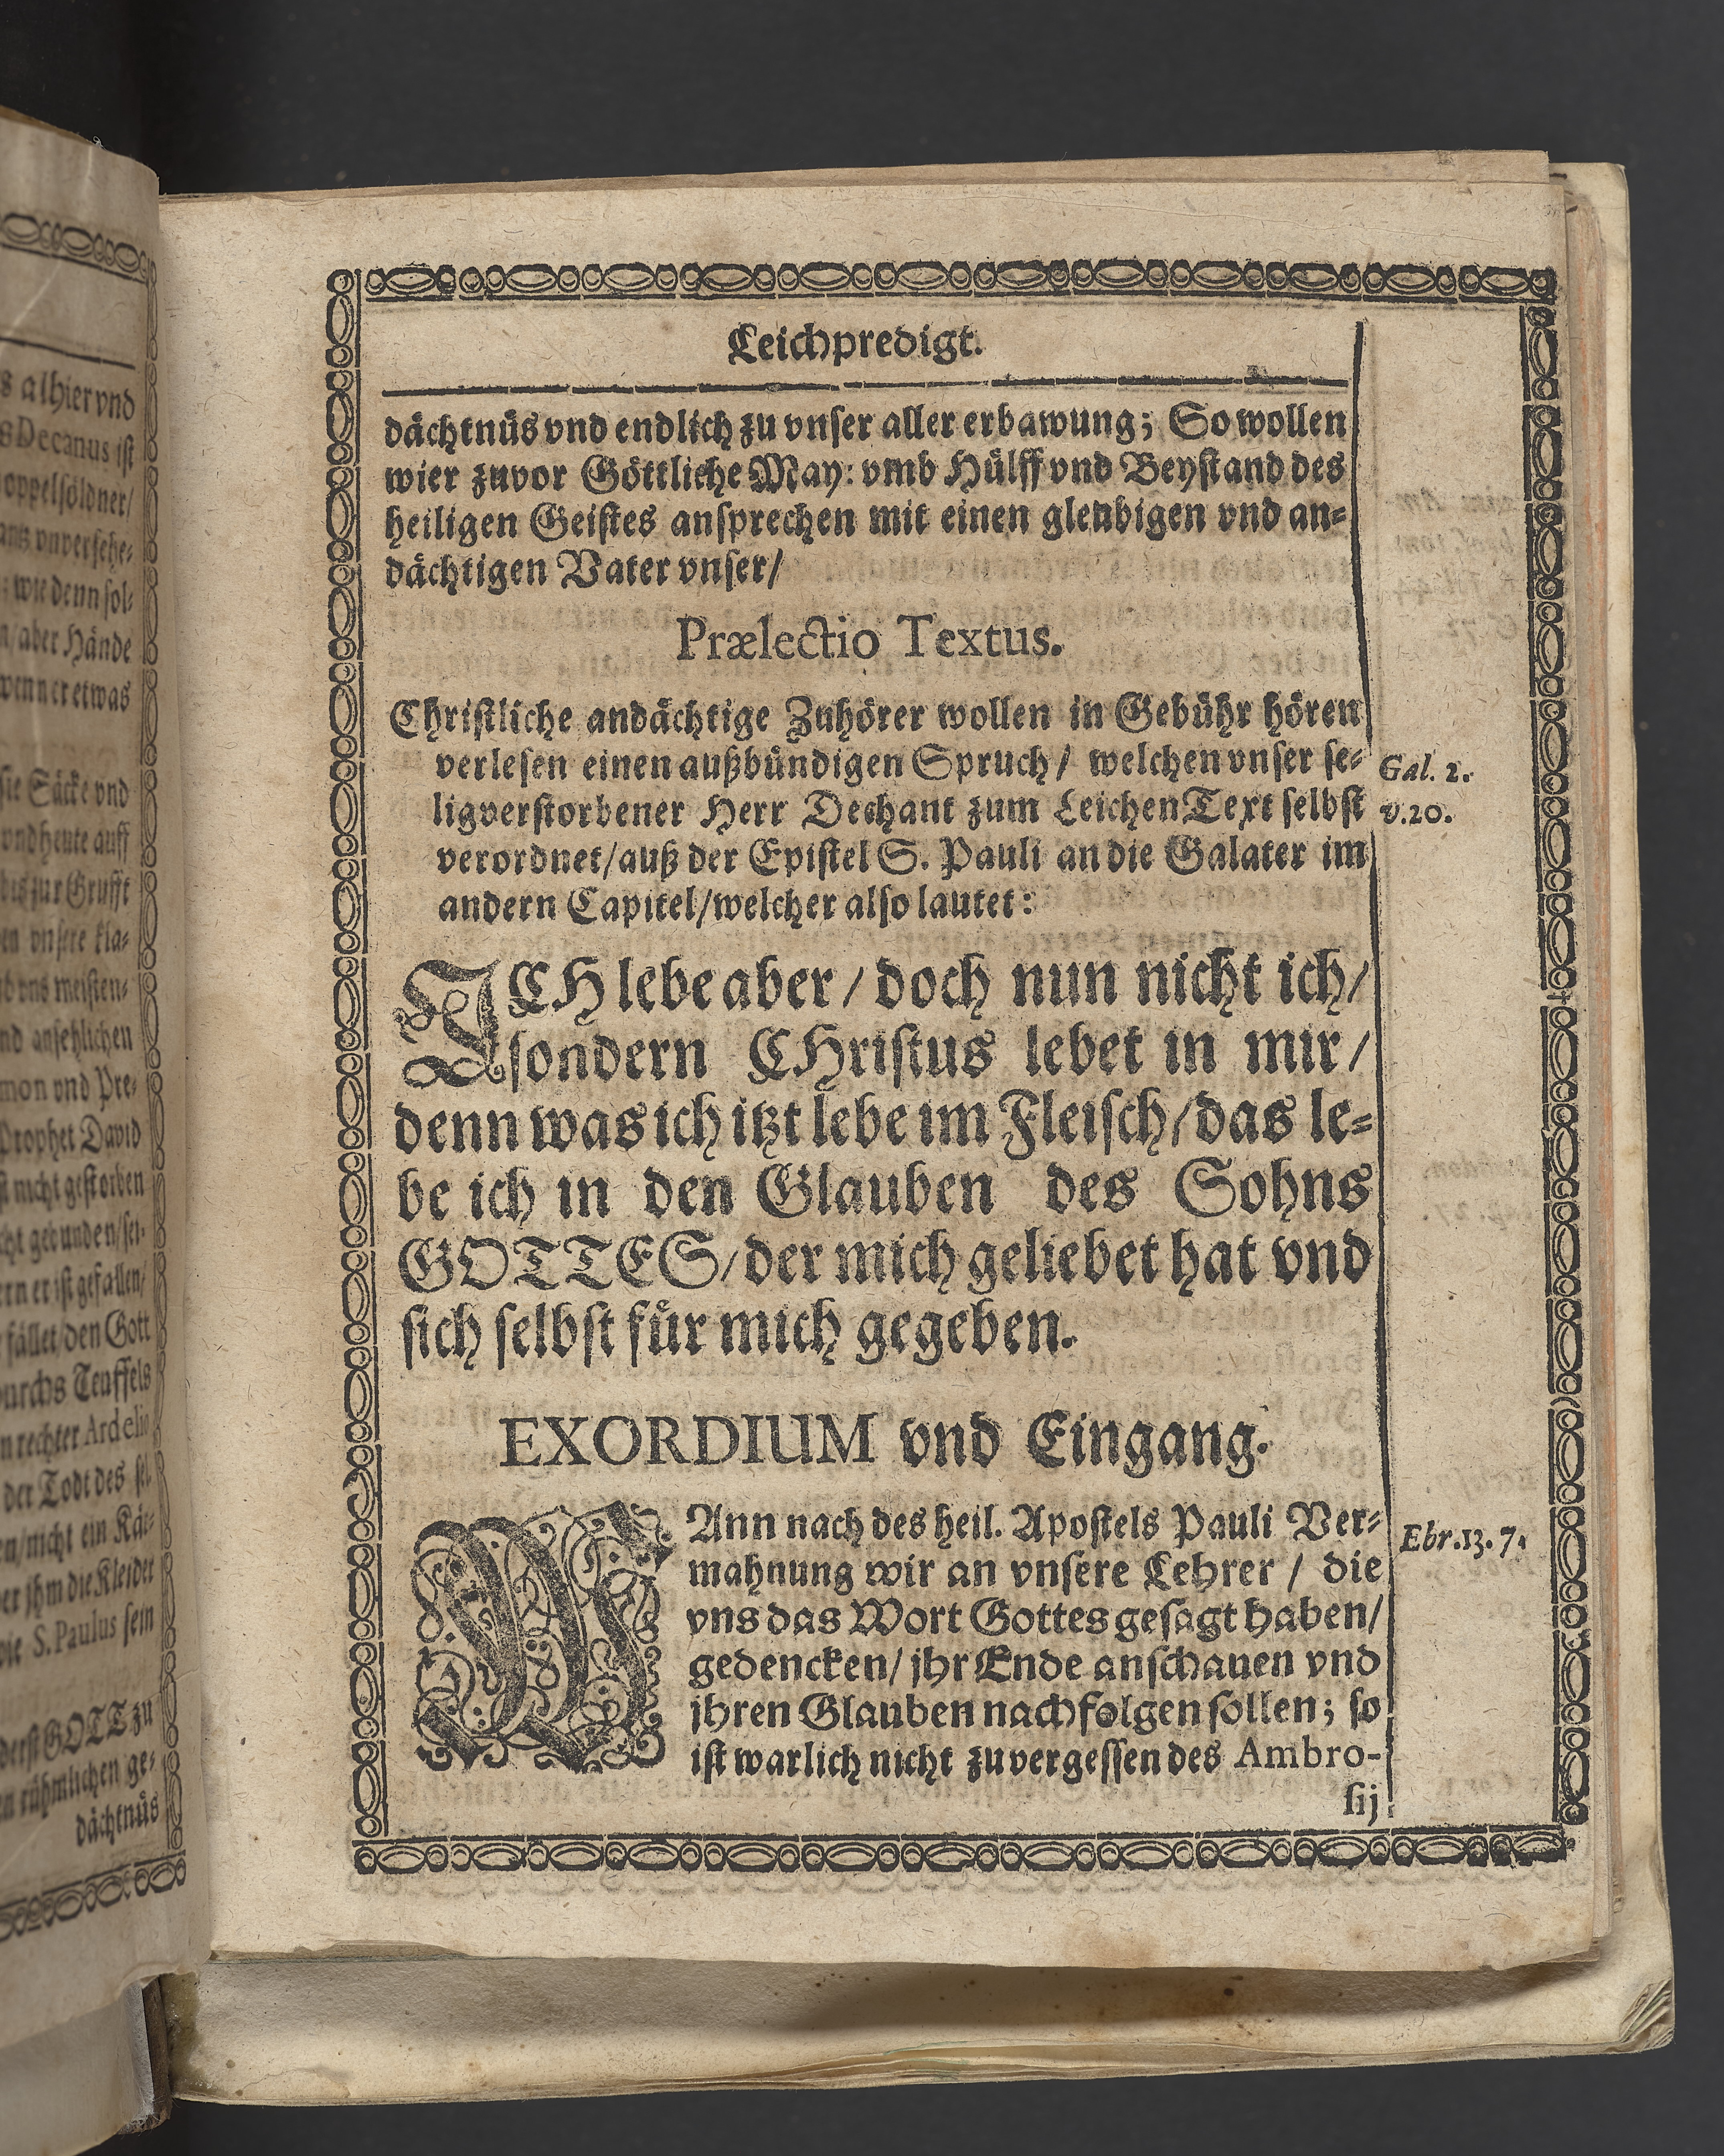 s alhier vnd
s Decanus ist
oppelsöldner/
ans vnversehe-
: wie denn sol-
n/aber Hände
wenn er etwas
sie Säcke vnd
vnd heute auff
bis zur Grufft
en vnsere kla-
vns meisten-
nd ansehlichen
mon vnd Pre-
Prophet David
st nicht gestorben
cht gebunden/sei-
ern er ist gefallen/
fället/den Gott
durchs Teuffels
n rechter Ardelio
der Todt des sel.
en/nicht ein Käi-
er jhm die Kleider
wie S. Paulus sein
derst GOTT zu
n rühmlichen ge-
dächtnüs
Leichpredigt.
dächtnüs vnd endlich zu vnser aller erbawung; So wollen
wier zuvor Göttliche May: vmb Hülff vnd Beystand des
heiligen Geistes ansprechen mit einen gleubigen vnd an-
dächtigen Vater vnser/
Prælectio Textus.
Christliche andächtige Zuhörer wollen in Gebühr hören
verlesen einen außbündigen Spruch/ welchen vnser se-
Gal. 2.
ligverstorbener Herr Dechant zum LeichenText selbst
v.20.
verordnet/auß der Epistel S. Pauli an die Galater im
andern Capitel/welcher also lautet:
ICH lebe aber/ doch nun nicht ich/
sondern CHristus lebet in mir/
denn was ich itzt lebe im Fleisch/das le-
be ich in den Glauben des Sohns
GOTTES/der mich geliebet hat vnd
sich selbst für mich gegeben.
EXORDIUM vnd Eingang.
WAnn nach des heil. Apostels Pauli Ver-
Ebr.13.7.
mahnung wir an vnsere Lehrer / die
vns das Wort Gottes gesagt haben/
gedencken/ jhr Ende anschauen vnd
jhren Glauben nachfolgen sollen; so
ist warlich nicht zuvergessen des Ambro-
sij